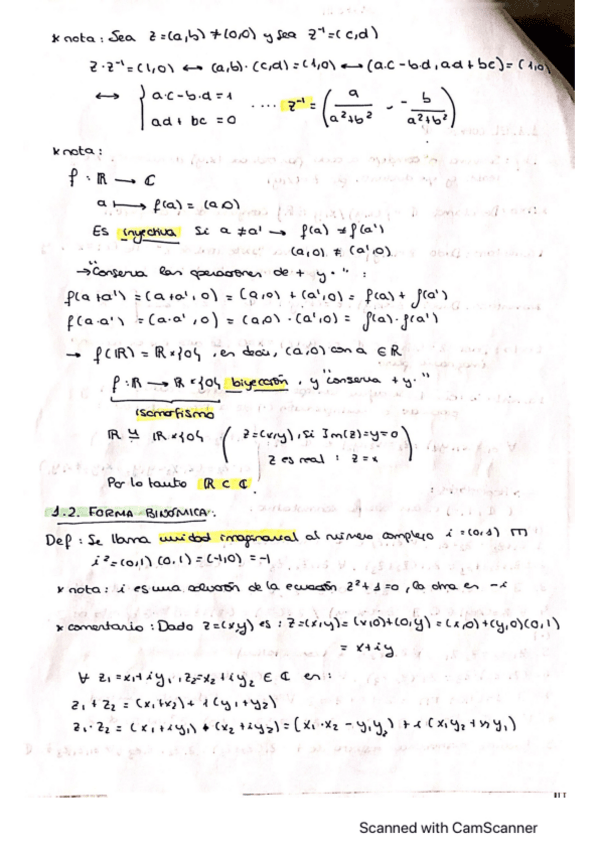 * nota: Sea z=(a,b)≠(0,0) y sea z⁻¹=(c,d)
z·z⁻¹=(1,0) ↔ (a,b)·(c,d)=(1,0) ↔ (a·c-b·d, ad+bc)=(1,0)
↔ { a·c-b·d=1
ad+bc=0 .... z⁻¹=(a/(a²+b²), - b/(a²+b²))
* nota:
f: ℝ → ℂ
a ⟼ f(a)=(a,0)
Es inyectiva Si a≠a' → f(a)≠f(a')
(a,0)≠(a',0)
→ "Conserva las operaciones de + y ·":
f(a+a')=(a+a',0)=(a,0)+(a',0)=f(a)+f(a')
f(a·a')=(a·a',0)=(a,0)·(a',0)=f(a)·f(a')
→ f(ℝ)=ℝ×{0}, es decir, (a,0) con a∈ℝ
f:ℝ→ℝ×{0} biyección, y "conserva + y ·"
isomorfismo
ℝ ≃ ℝ×{0} (z=(x,y), si Im(z)=y=0
z es real: z=x)
Por lo tanto ℝ⊂ℂ.
1.2. FORMA BINÓMICA:
Def: Se llama unidad imaginaria al número complejo i=(0,1)
i²=(0,1)·(0,1)=(-1,0)=-1
* nota: i es una solución de la ecuación z²+1=0, la otra es -i
* comentario: Dado z=(x,y) es: z=(x,y)=(x,0)+(0,y)=(x,0)+(y,0)(0,1)
= x+iy
∀ z₁=x₁+iy₁, z₂=x₂+iy₂ ∈ ℂ es:
z₁+z₂=(x₁+x₂)+i(y₁+y₂)
z₁·z₂=(x₁+iy₁)·(x₂+iy₂)=(x₁·x₂-y₁y₂)+i(x₁y₂+x₂y₁)
Scanned with CamScanner